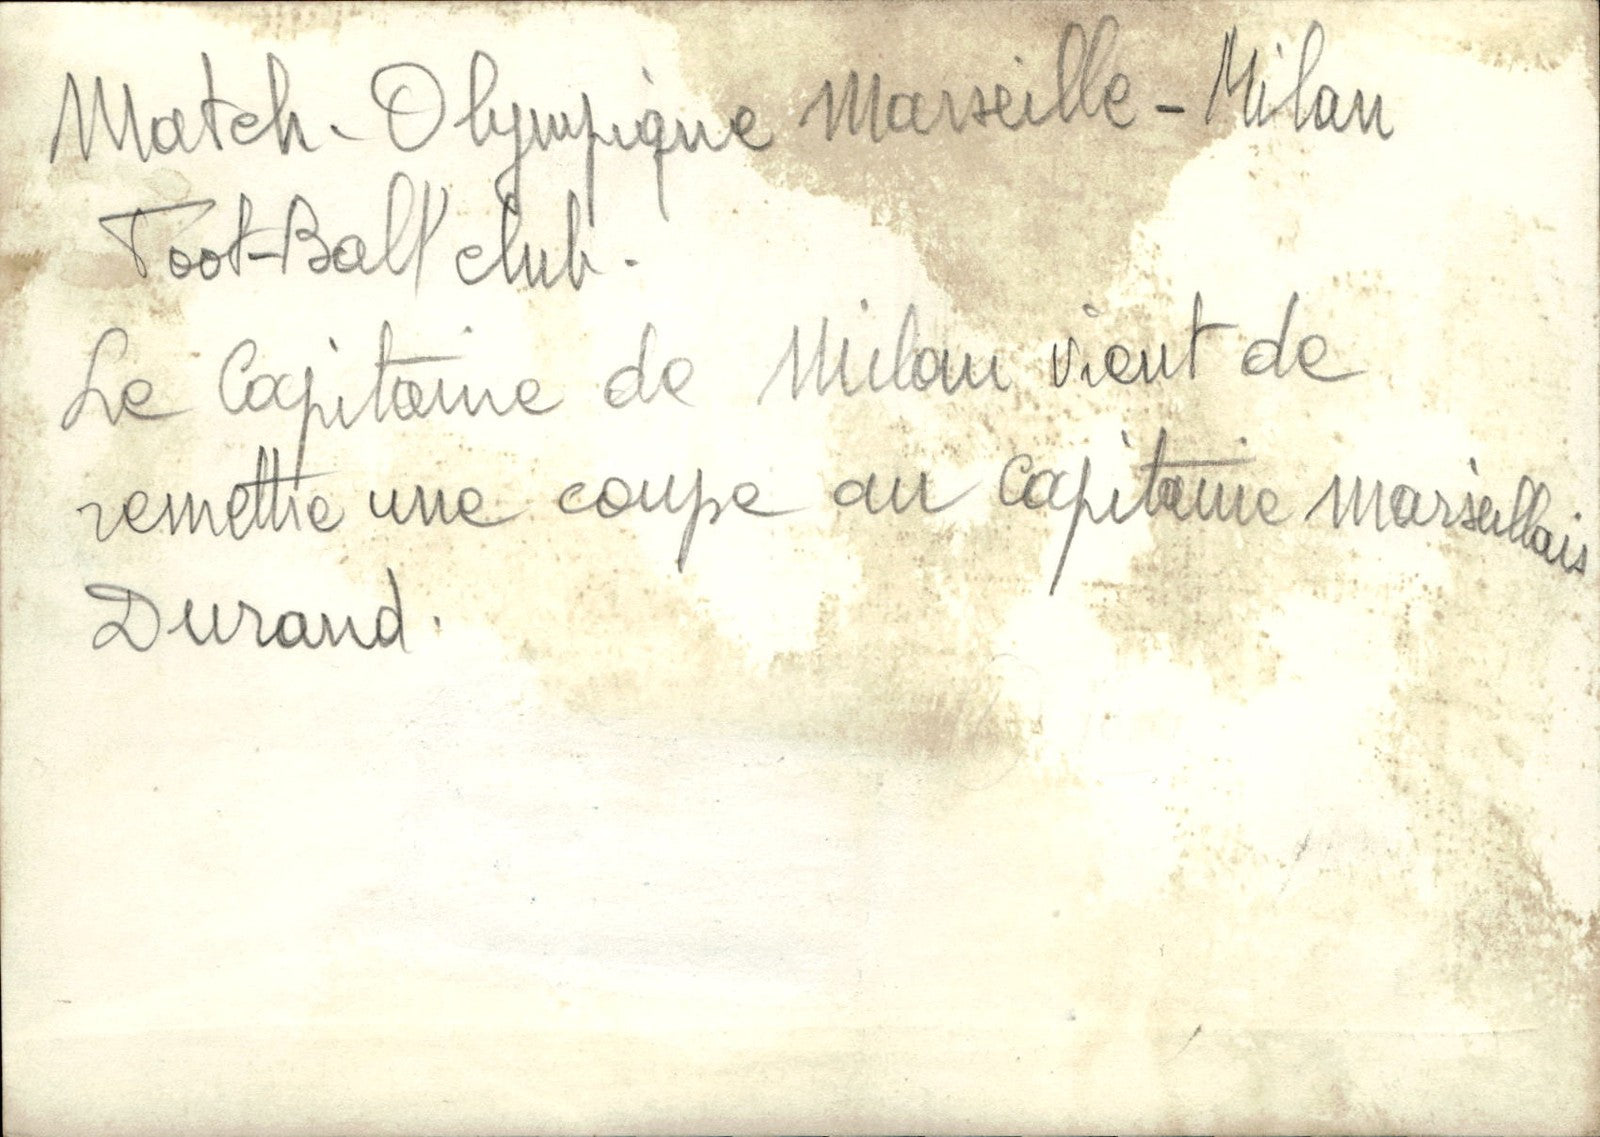 Match - Olympique Marseille - Milan
Foot-Ball' club.
Le Capitaine de Milan vient de
remettre une coupe au capitaine Marseillais
Durand.